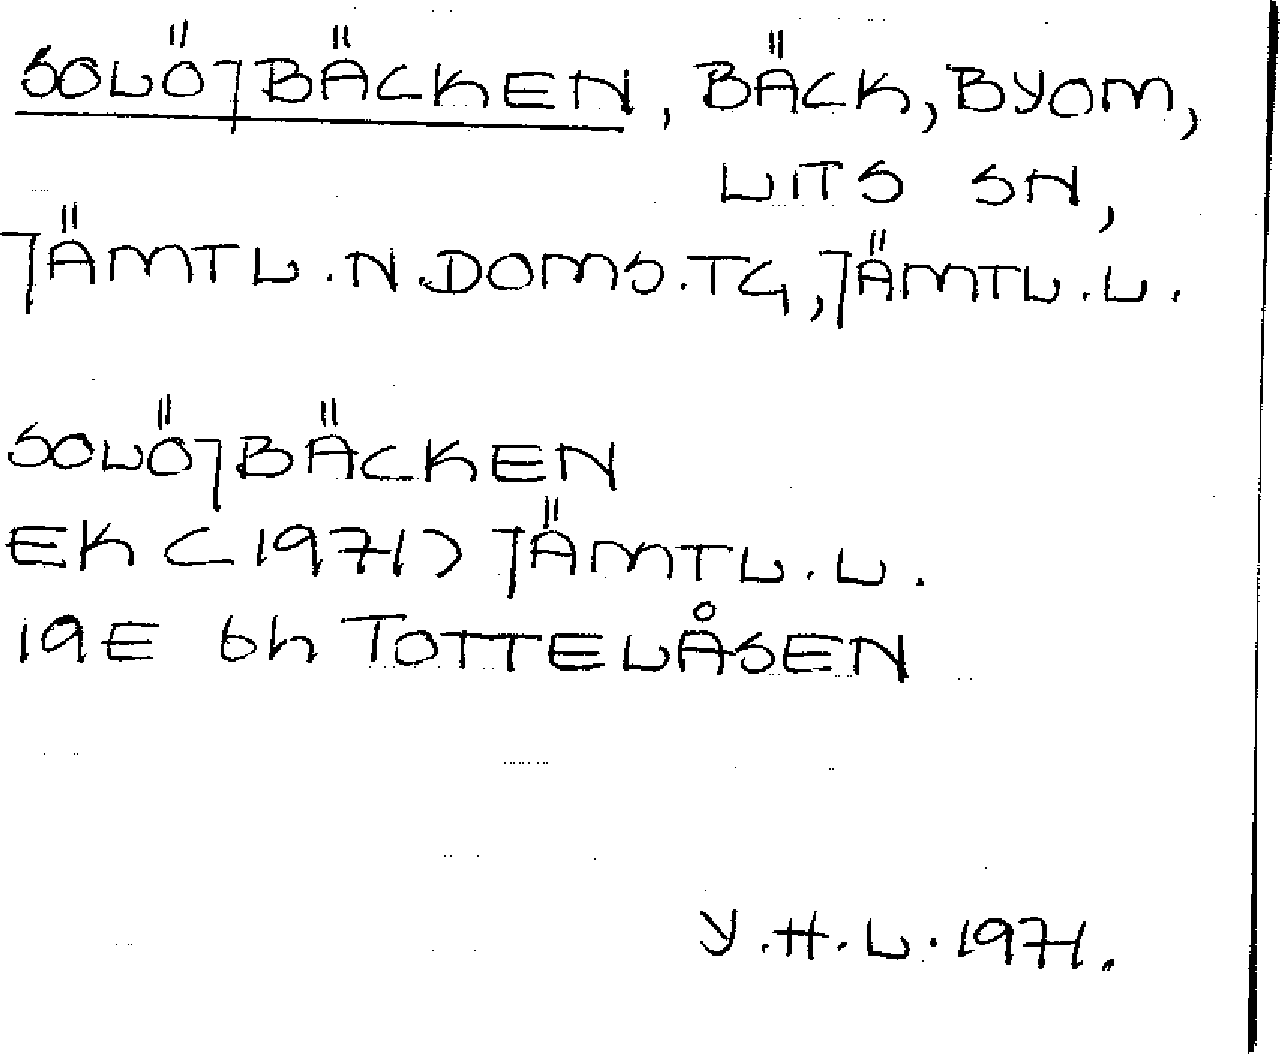 SOLÖJBÄCKEN, BÄCK, BYOM,
LITS SN,
JÄMTL.N.DOMS.TG, JÄMTL.L.
SOLÖJBÄCKEN
EK (1971) JÄMTL.L.
19E 6h TOTTELÅSEN
Y.H.L.1971.